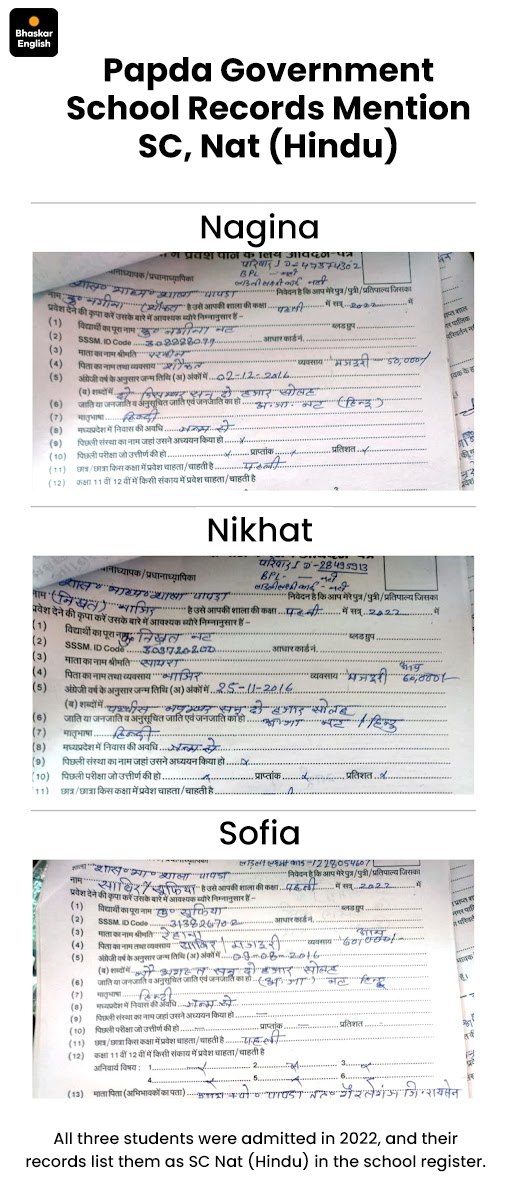 Bhaskar
English
Papda Government
School Records Mention
SC, Nat (Hindu)
Nagina
प्रवेश पाने के लिये आवेदन-पत्र
परिवार I D-47874302
BPL - नहीं
प्रधानाध्यापक/प्रधानाध्यापिका
लाडली लक्ष्मी कार्ड नहीं
शास० माध्य० शाला पापडा निवेदन है कि आप मेरे पुत्र/पुत्री/प्रतिपाल्य जिसका
नाम कु० नगीना है उसे आपकी शाला की कक्षा पहली में सत्र 2022 में
प्रवेश देने की कृपा करें उसके बारे में आवश्यक ब्योरे निम्नानुसार हैं -
(1) विद्यार्थी का पूरा नाम कु० नगीना नट ब्लडग्रुप
(2) SSSM. ID Code आधार कार्ड नं.
(3) माता का नाम श्रीमति
(4) पिता का नाम तथा व्यवसाय शौकत व्यवसाय मजदूरी - 50,000/
(5) अंग्रेजी वर्ष के अनुसार जन्म तिथि (अ) अंकों में 02-12-2016
(ब) शब्दों में दो दिसम्बर सन् दो हजार सोलह
(6) जाति या जनजाति व अनुसूचित जाति एवं जनजाति का हो अ.जा. नट (हिन्दू)
(7) मातृभाषा हिन्दी
(8) मध्यप्रदेश में निवास की अवधि जन्म से
(9) पिछली संस्था का नाम जहां उसने अध्ययन किया हो x
(10) पिछली परीक्षा जो उत्तीर्ण की हो x प्राप्तांक x प्रतिशत x
(11) छात्र/छात्रा किस कक्षा में प्रवेश चाहता/चाहती है पहली
(12) कक्षा 11 वीं 12 वीं में किसी संकाय में प्रवेश चाहता/चाहती है
Nikhat
परिवार I D-28495913
BPL- - नहीं
प्रधानाध्यापक/प्रधानाध्यापिका
लाडली लक्ष्मी कार्ड - नहीं
शास० माध्य० शाला पापडा निवेदन है कि आप मेरे पुत्र/पुत्री/प्रतिपाल्य जिसका
नाम (निखत) नाजिर है उसे आपकी शाला की कक्षा पहली में सत्र 2022 में
प्रवेश देने की कृपा करें उसके बारे में आवश्यक ब्योरे निम्नानुसार हैं -
(1) विद्यार्थी का पूरा नाम कु० निखत नट ब्लडग्रुप
(2) SSSM. ID Code आधार कार्ड नं.
(3) माता का नाम श्रीमति सायरा
(4) पिता का नाम तथा व्यवसाय नाजिर व्यवसाय मजदूरी आय 60,000/-
(5) अंग्रेजी वर्ष के अनुसार जन्म तिथि (अ) अंकों में 25-11-2016
(ब) शब्दों में पच्चीस नवम्बर सन् दो हजार सोलह
(6) जाति या जनजाति व अनुसूचित जाति एवं जनजाति का हो अ.जा नट / हिन्दु
(7) मातृभाषा हिन्दी
(8) मध्यप्रदेश में निवास की अवधि जन्म से
(9) पिछली संस्था का नाम जहां उसने अध्ययन किया हो x
(10) पिछली परीक्षा जो उत्तीर्ण की हो x प्राप्तांक x प्रतिशत x
(11) छात्र/छात्रा किस कक्षा में प्रवेश चाहता/चाहती है
Sofia
लाडली लक्ष्मी कार्ड-1228054607
शास० मा० शाला पापडा निवेदन है कि आप मेरे पुत्र/पुत्री/प्रतिपाल्य जिसका
नाम साबिर/सूफिया है उसे आपकी शाला की कक्षा पहली में सत्र 2022 में
प्रवेश देने की कृपा करें उसके बारे में आवश्यक ब्योरे निम्नानुसार हैं -
(1) विद्यार्थी का पूरा नाम कु० सूफिया ब्लडग्रुप
(2) SSSM. ID Code आधार कार्ड नं.
(3) माता का नाम श्रीमति रेहाना आय
(4) पिता का नाम तथा व्यवसाय साबिर / मजदूरी व्यवसाय 60,000/-
(5) अंग्रेजी वर्ष के अनुसार जन्म तिथि (अ) अंकों में 09-08-2016
(ब) शब्दों में नौ अगस्त सन् दो हजार सोलह
(6) जाति या जनजाति व अनुसूचित जाति एवं जनजाति का हो (अ.जा) नट हिन्दू
(7) मातृभाषा हिन्दी
(8) मध्यप्रदेश में निवास की अवधि जन्म से
(9) पिछली संस्था का नाम जहां उसने अध्ययन किया हो
(10) पिछली परीक्षा जो उत्तीर्ण की हो प्राप्तांक प्रतिशत
(11) छात्र/छात्रा किस कक्षा में प्रवेश चाहता/चाहती है पहली
(12) कक्षा 11 वीं 12 वीं में किसी संकाय में प्रवेश चाहता/चाहती है
अनिवार्य विषय : 1. 2. 3.
4. 5. 6.
(13) माता पिता (अभिभावकों का पता) पापडा गैरतगंज जि. रायसेन
All three students were admitted in 2022, and their
records list them as SC Nat (Hindu) in the school register.